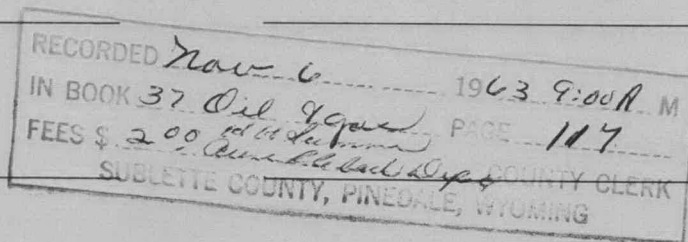 RECORDED Nov 6 1963 9:00 A M
IN BOOK 37 Oil & Gas PAGE 117
FEES $ 2.00
COUNTY CLERK
SUBLETTE COUNTY, PINEDALE, WYOMING